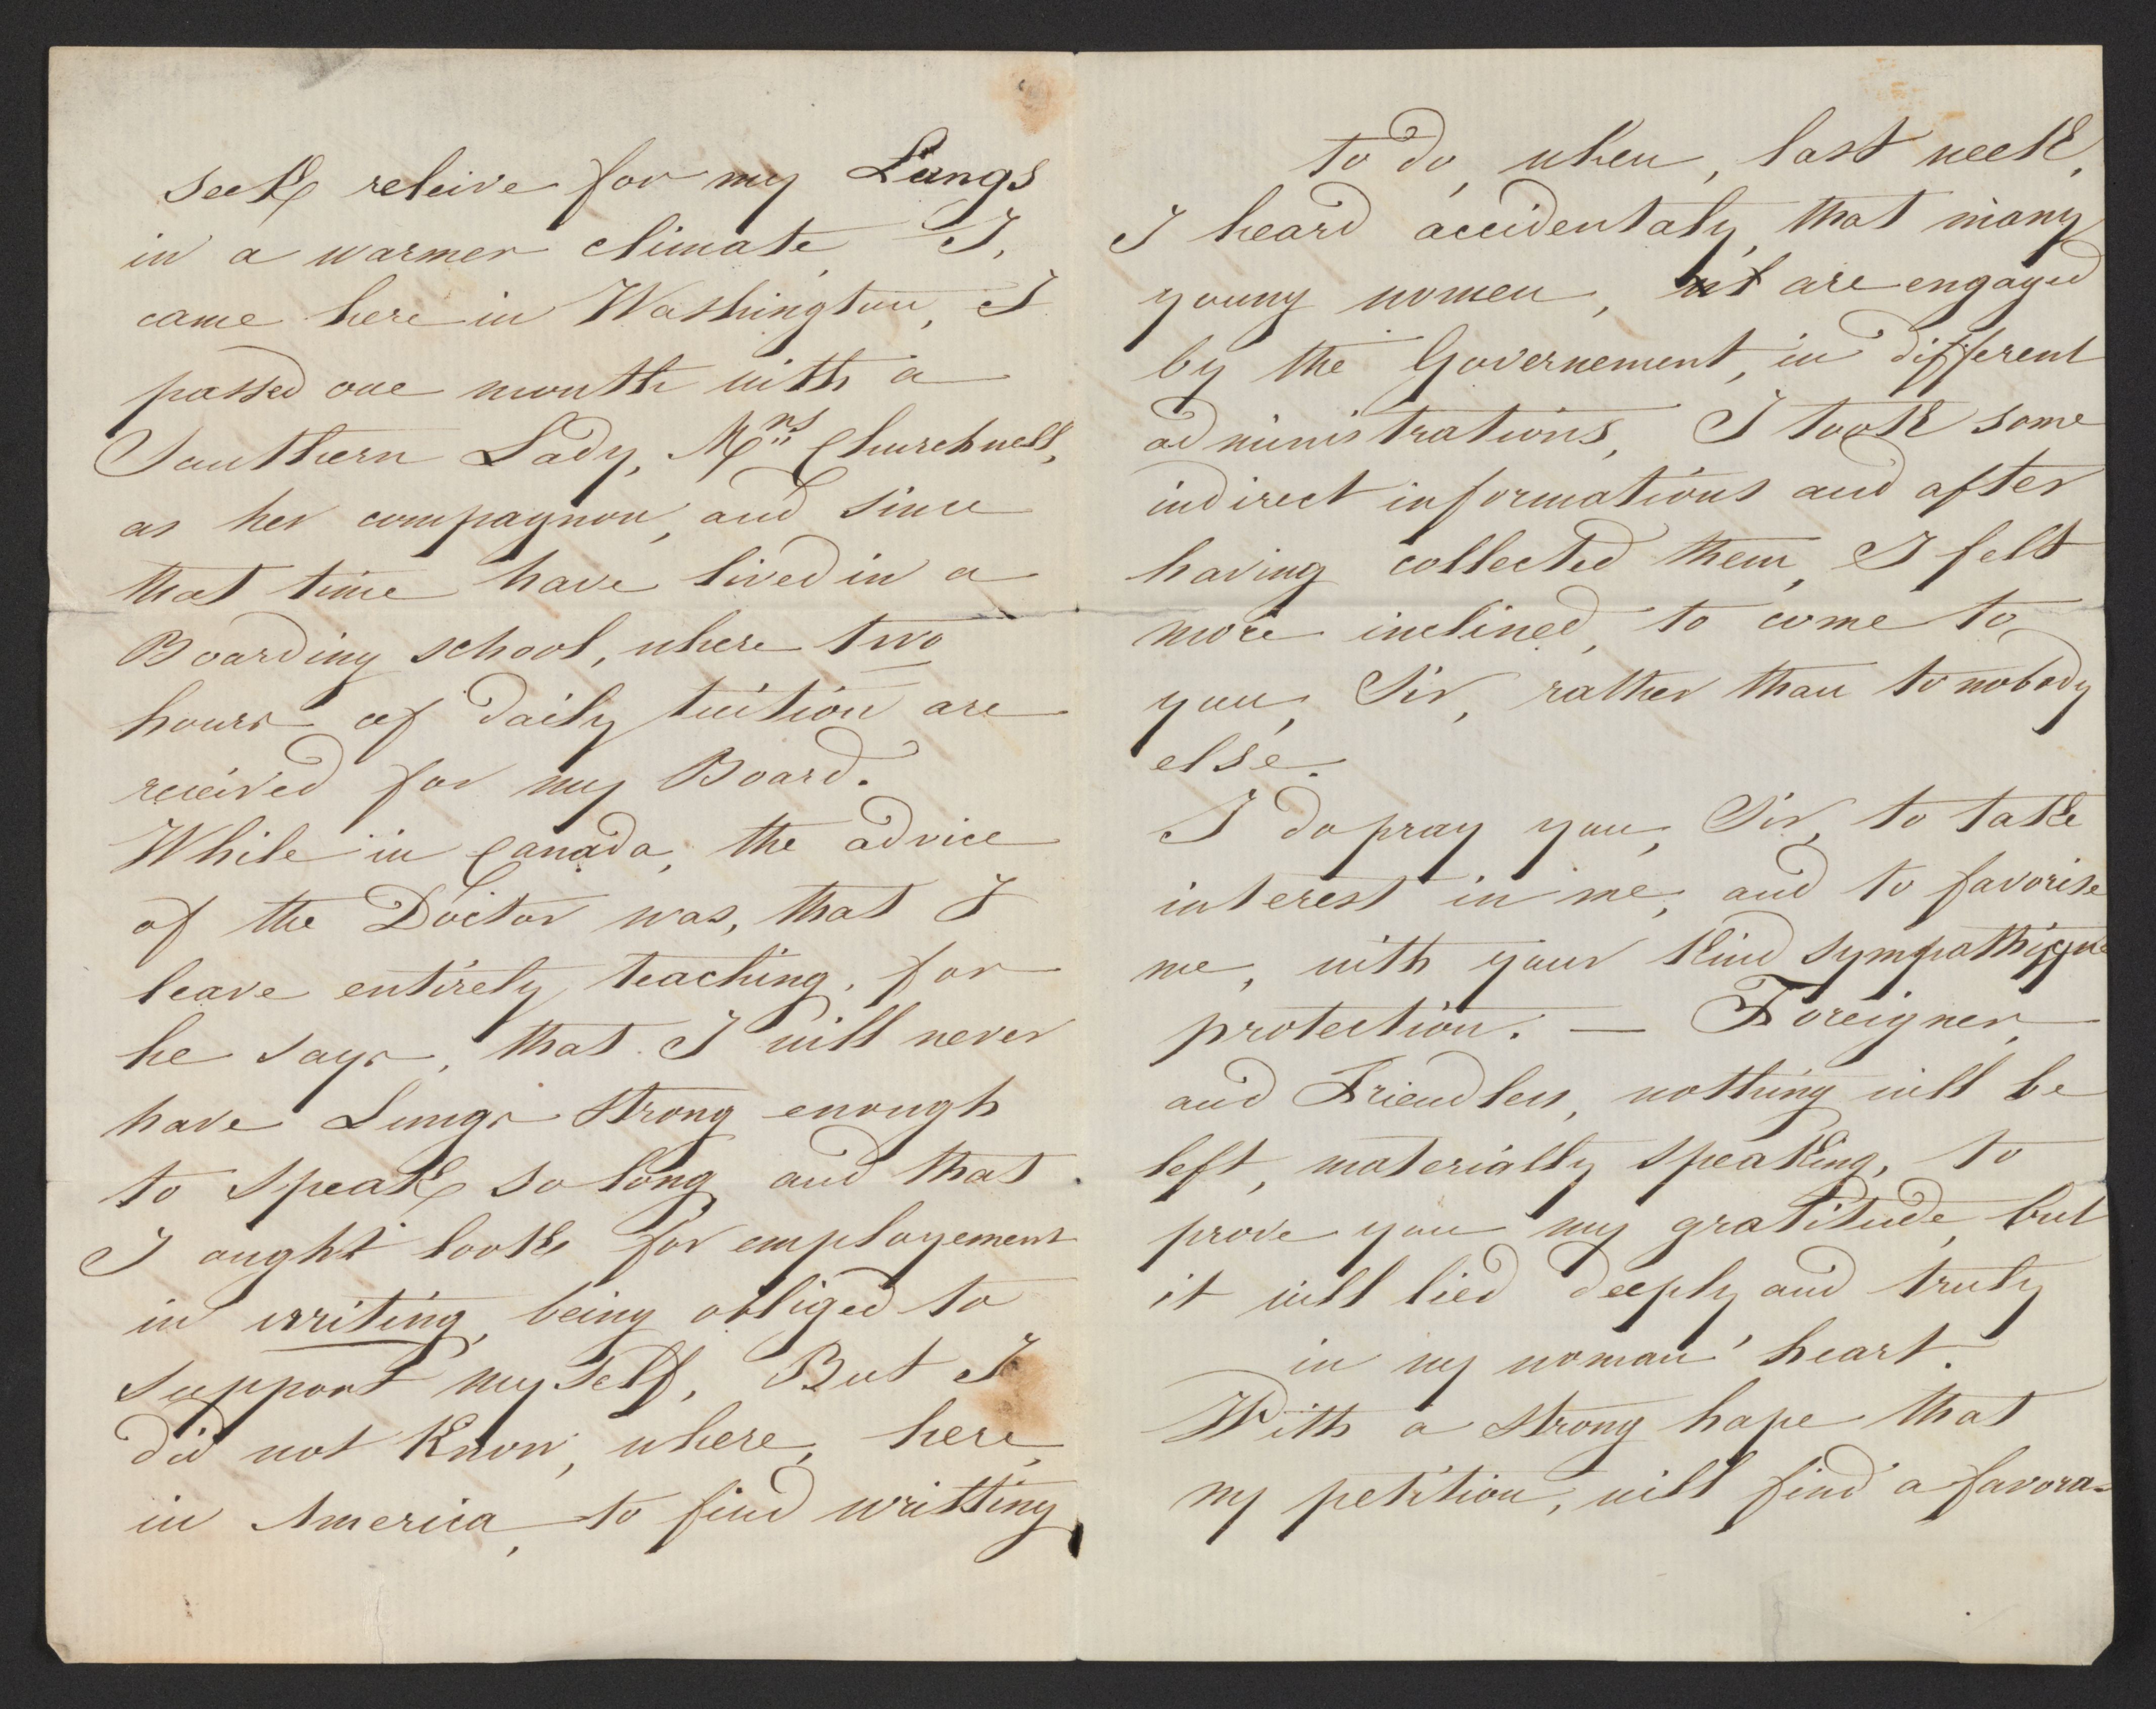 seek releive for my Lungs
in a warmer climate, I,
came here in Washington, I
passed one month with a
Southern Lady, Mrs Churchwell,
as her compagnon, and since
that time have lived in a
Boarding school, where two
hours of daily tuition are
received for my Board.
While in Canada, the advice
of the Doctor was, that I
leave entirely teaching, for
he says, that I will never
have Lungs strong enough
to speak so long and that
I aught look for employement
in writing, being obliged to
support my self, But I
did not know, where, here,
in America, to find writting
to do, when, last week,
I heard accidentaly, that many
young women, are engaged
by the Governement, in different
administrations, I took some
indirect informations and after
having collected them, I felt
more inclined, to come to
you, Sir, rather than to nobody
else.
I do pray you, Sir, to take
interest in me, and to favorise
me, with your kind sympathique
protection. — Foreigner,
and Friendless, nothing will be
left, materially speaking, to
prove you my gratitude, but
it will lied deeply and truly
in my woman' heart.
With a strong hope that
my petition, will find a favora=